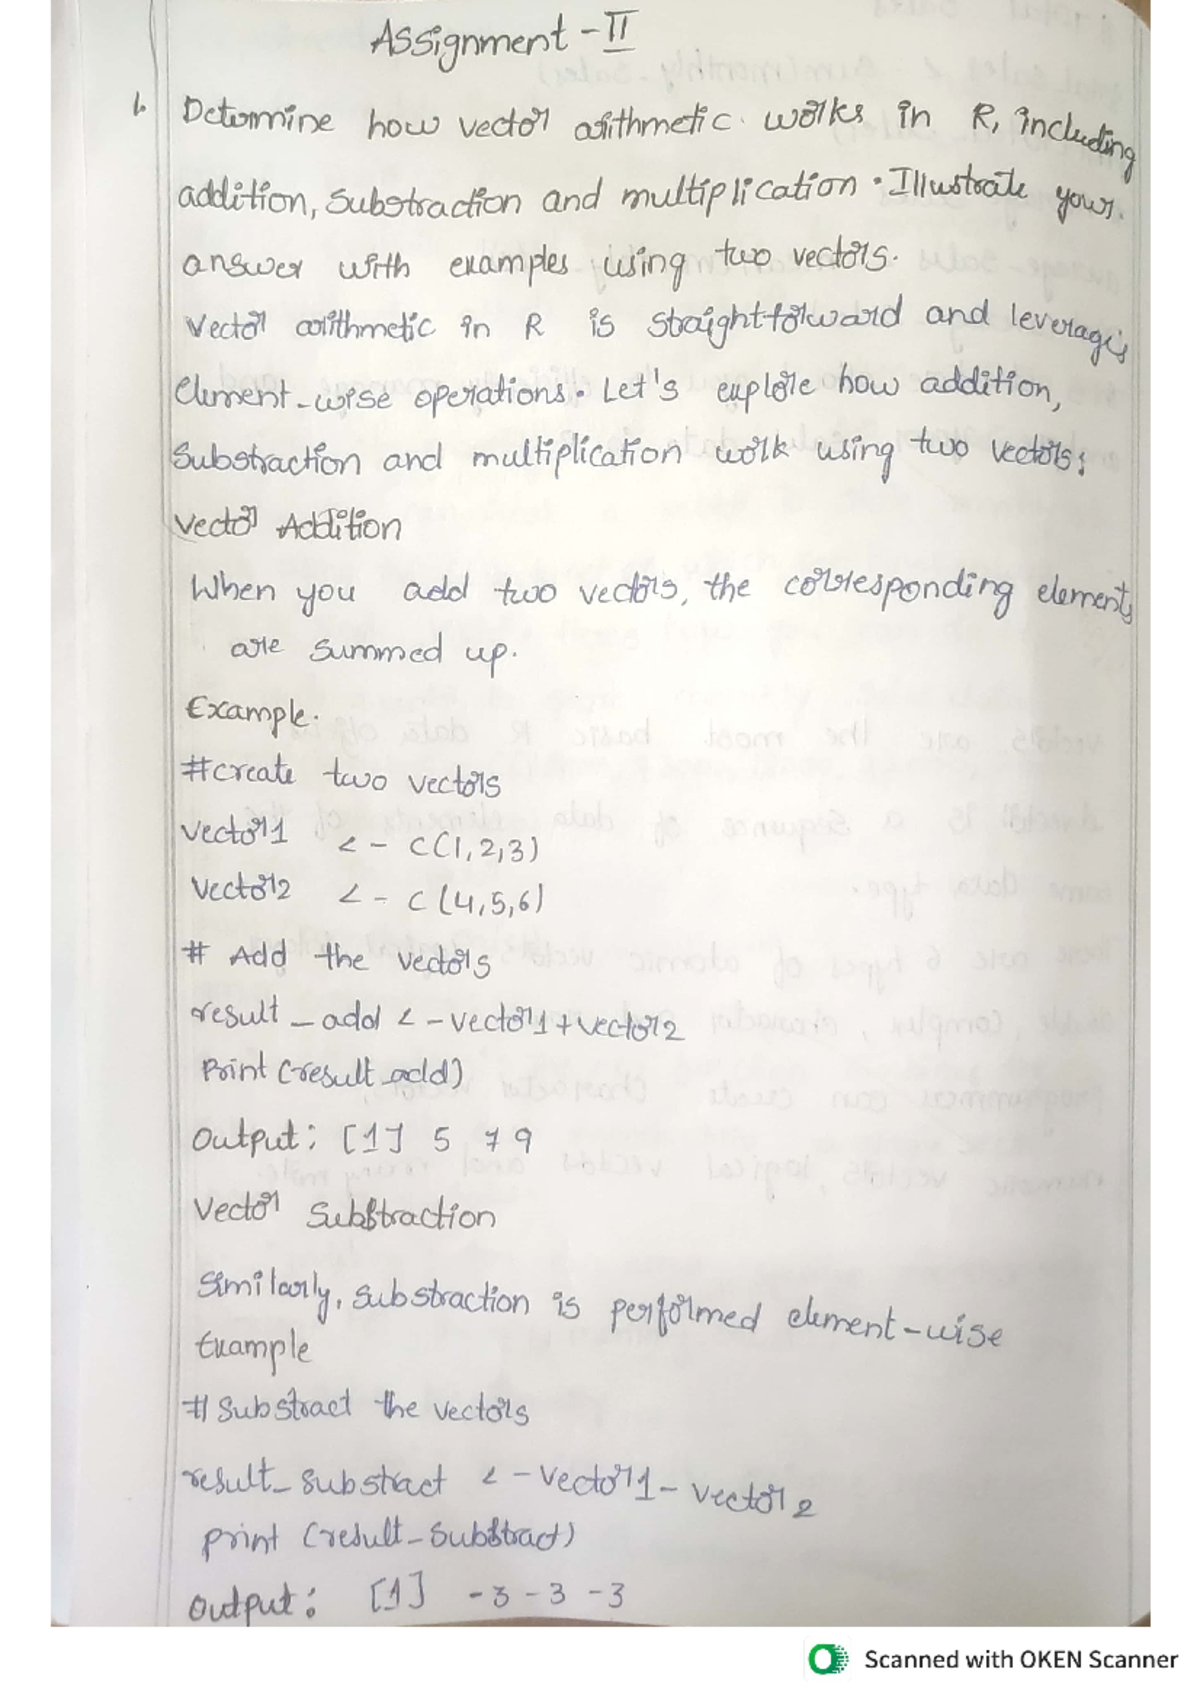 Assignment - II
1. Determine how vector arithmetic works in R, including
addition, Substraction and multiplication. Illustrate your
answer with examples using two vectors.
Vector arithmetic in R is straightforward and leverages
Element-wise operations. Let's explore how addition,
Substraction and multiplication work using two vectors;
Vector Addition
When you add two vectors, the corresponding elements
are summed up.
Example.
#create two vectors
vector1 <- C(1,2,3)
Vector2 <- C(4,5,6)
# Add the vectors
result_add <-vector1+vector2
Print (result_add)
Output: [1] 5 7 9
Vector Subtraction
Similarly, substraction is performed element-wise
Example
# Substract the vectors
result_substract <-vector1-vector2
print (result-Substract)
Output: [1] -3 -3 -3
Scanned with OKEN Scanner